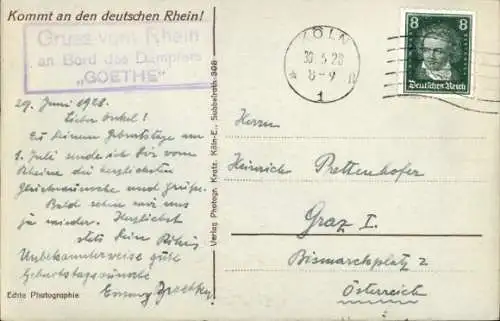 Kommt an den deutschen Rhein!
Gruss vom Rhein
an Bord des Dampfers
„GOETHE"
29. Juni 1928.
Lieber Onkel!
Zu Deinem Geburtstage am
1. Juli sende ich Dir vom
Rheine die herzlichsten
Glückwünsche und Grüße.
Bald sehen wir uns
ja wieder. Herzlichst
stets Deine
Unbekannterweise gute
Geburtstagswünsche
Echte Photographie
Verlag Photogr. Kratz, Köln-E., Subbelratherstr. 308
KÖLN
8-9
1
8 8
Deutsches Reich
Herrn
Heinrich Prettenhofer
Graz I.
Bismarckplatz 2
Österreich